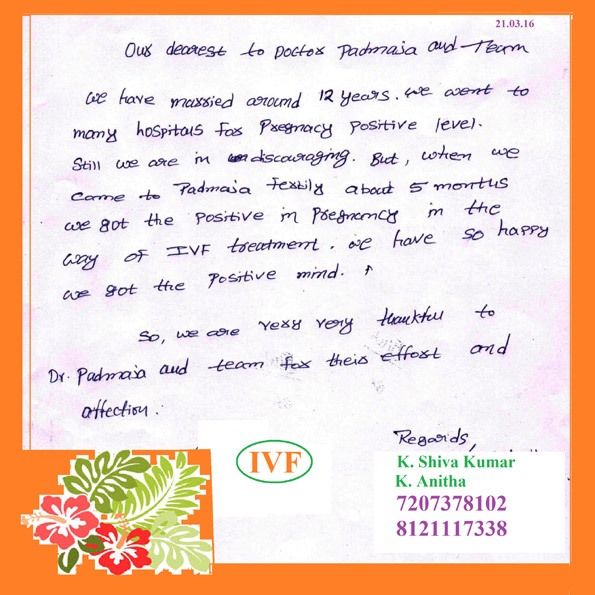 21.03.16
Our dearest to Doctor Padmaja and Team
We have married around 12 years. We went to
many hospitals for Pregnacy Positive level.
Still we are in discouraging. But, when we
came to Padmaja Fertily about 5 months
we got the Positive in Pregnancy in the
way of IVF treatment. We have so happy
we got the Positive mind.
So, we are very very thankful to
Dr. Padmaja and team for their effort and
affection.
Regards,
IVF
K. Shiva Kumar
K. Anitha
7207378102
8121117338